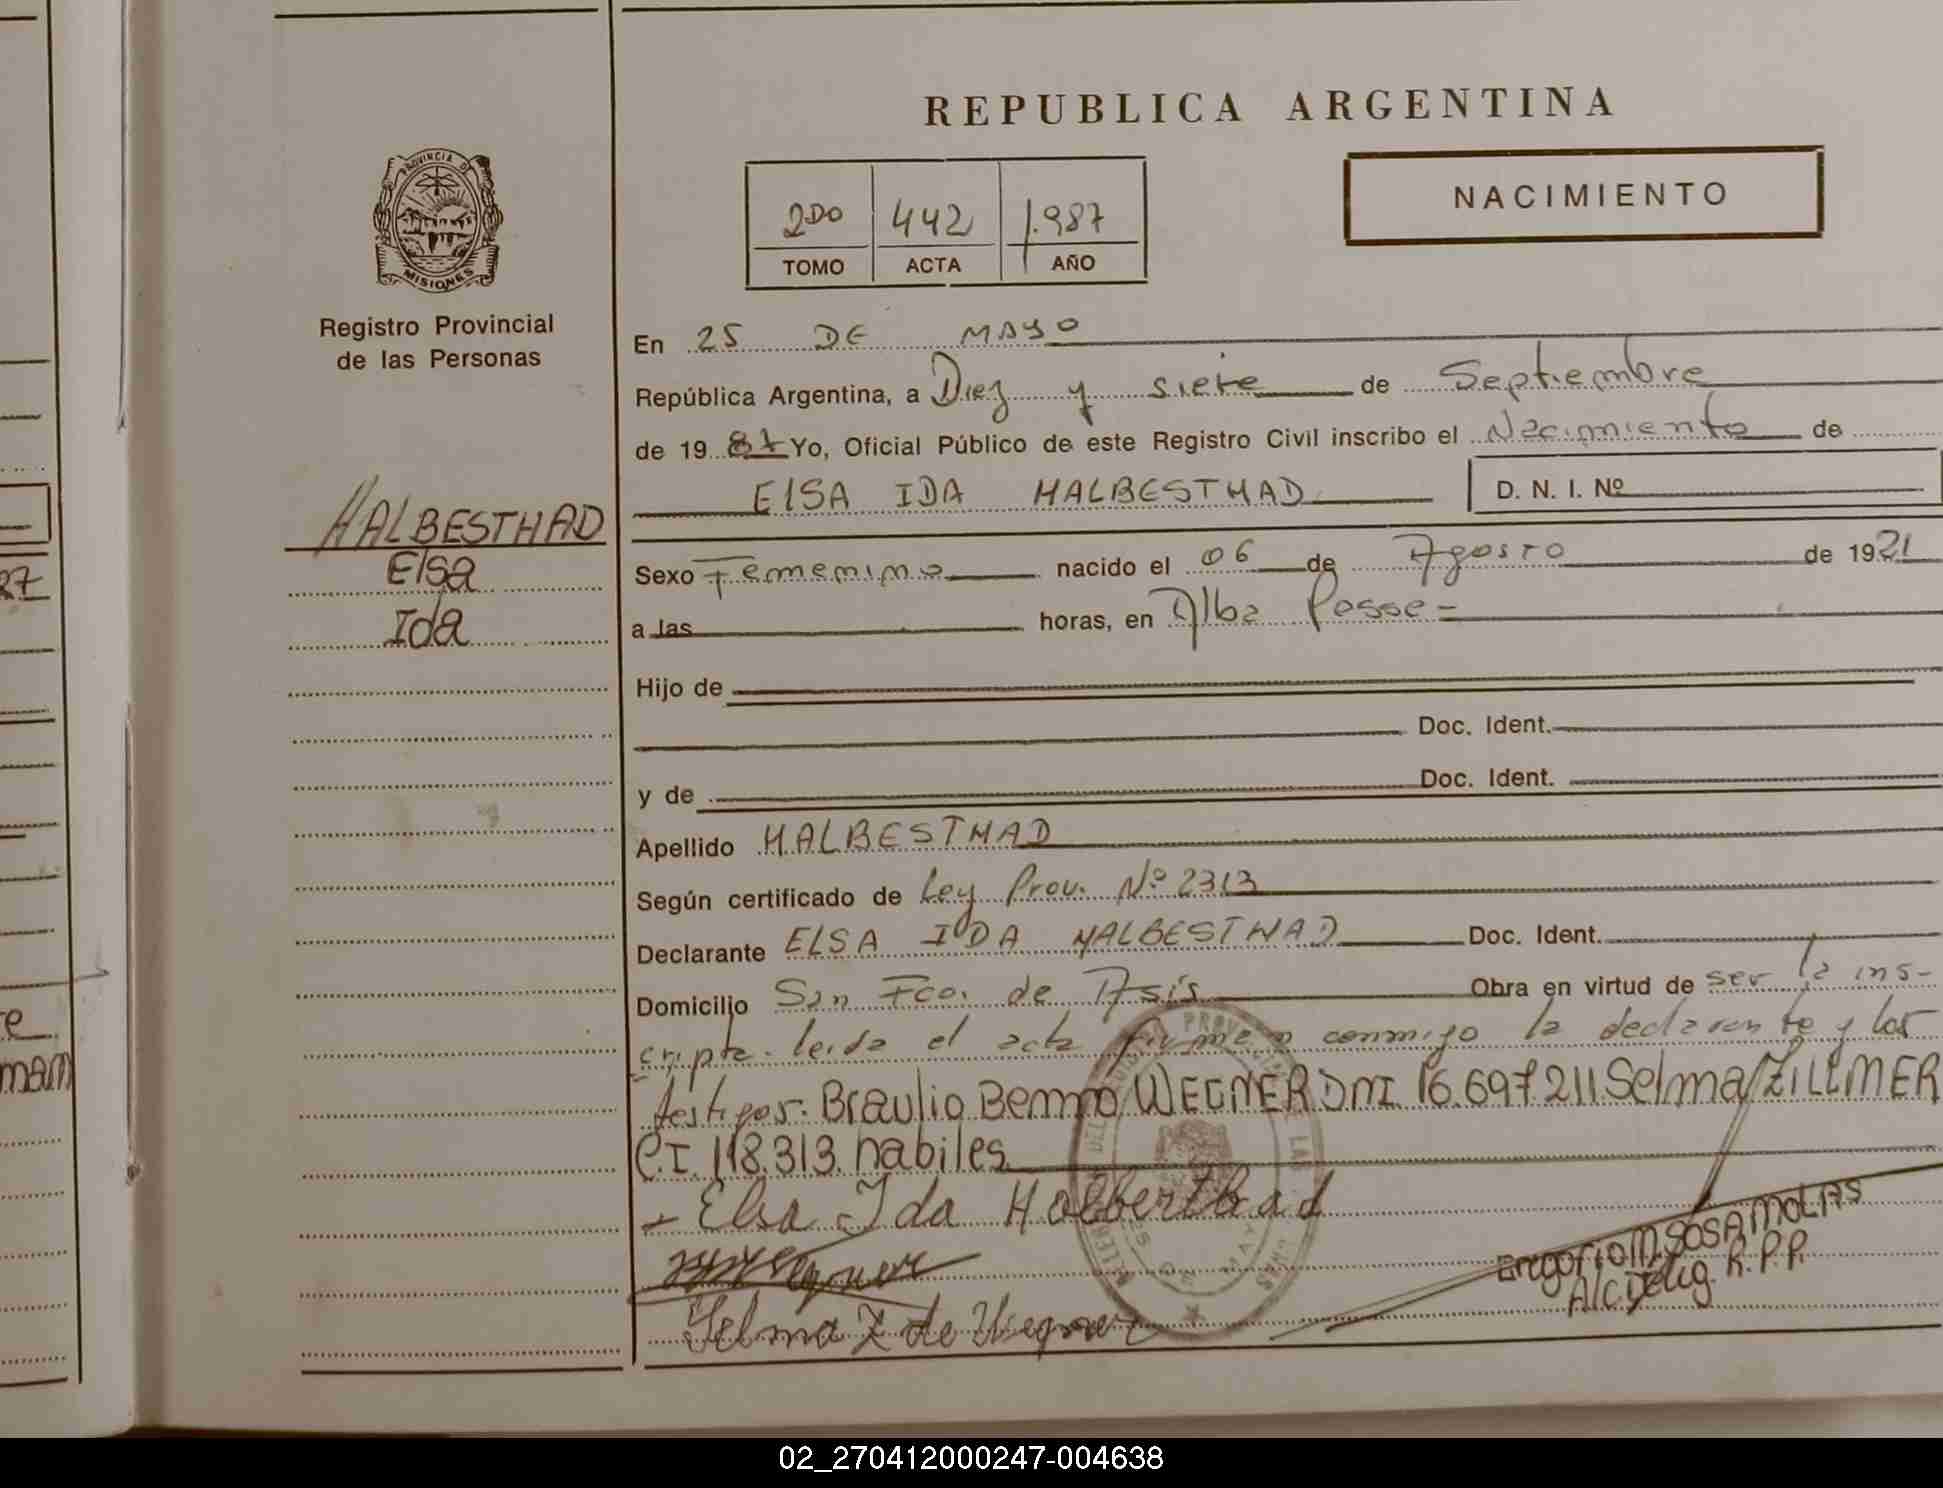 REPUBLICA ARGENTINA
NACIMIENTO
2DO 442 1.987
TOMO ACTA AÑO
PROVINCIA DE
MISIONES
Registro Provincial
de las Personas
HALBESTHAD
Elsa
Ida
En 25 DE MAYO
República Argentina, a Diez y siete de Septiembre
de 19 87 Yo, Oficial Público de este Registro Civil inscribo el Nacimiento de
ElSA IDA HALBESTHAD D. N. I. Nº
Sexo Femenino nacido el 06 de Agosto de 1921
a las horas, en Alba Posse-
Hijo de
Doc. Ident.
y de Doc. Ident.
Apellido HALBESTHAD
Según certificado de Ley Prov. Nº 2313
Declarante ELSA IDA HALBESTHAD Doc. Ident.
Domicilio San Fco. de Asís Obra en virtud de ser la ins-
cripta. leida el acta firman conmigo la declarante y los
testigos: Braulio Benno WEGNER DNI 16.697.211 Selma ZILLMER
C.I. 118.313 habiles
- Elsa Ida Halbersthad
Wegner
Selma Z de Wegner
Gregorio M. SOSA MOLAS
A/C Deleg. R.P.P.
27
e
mann
02_270412000247-004638